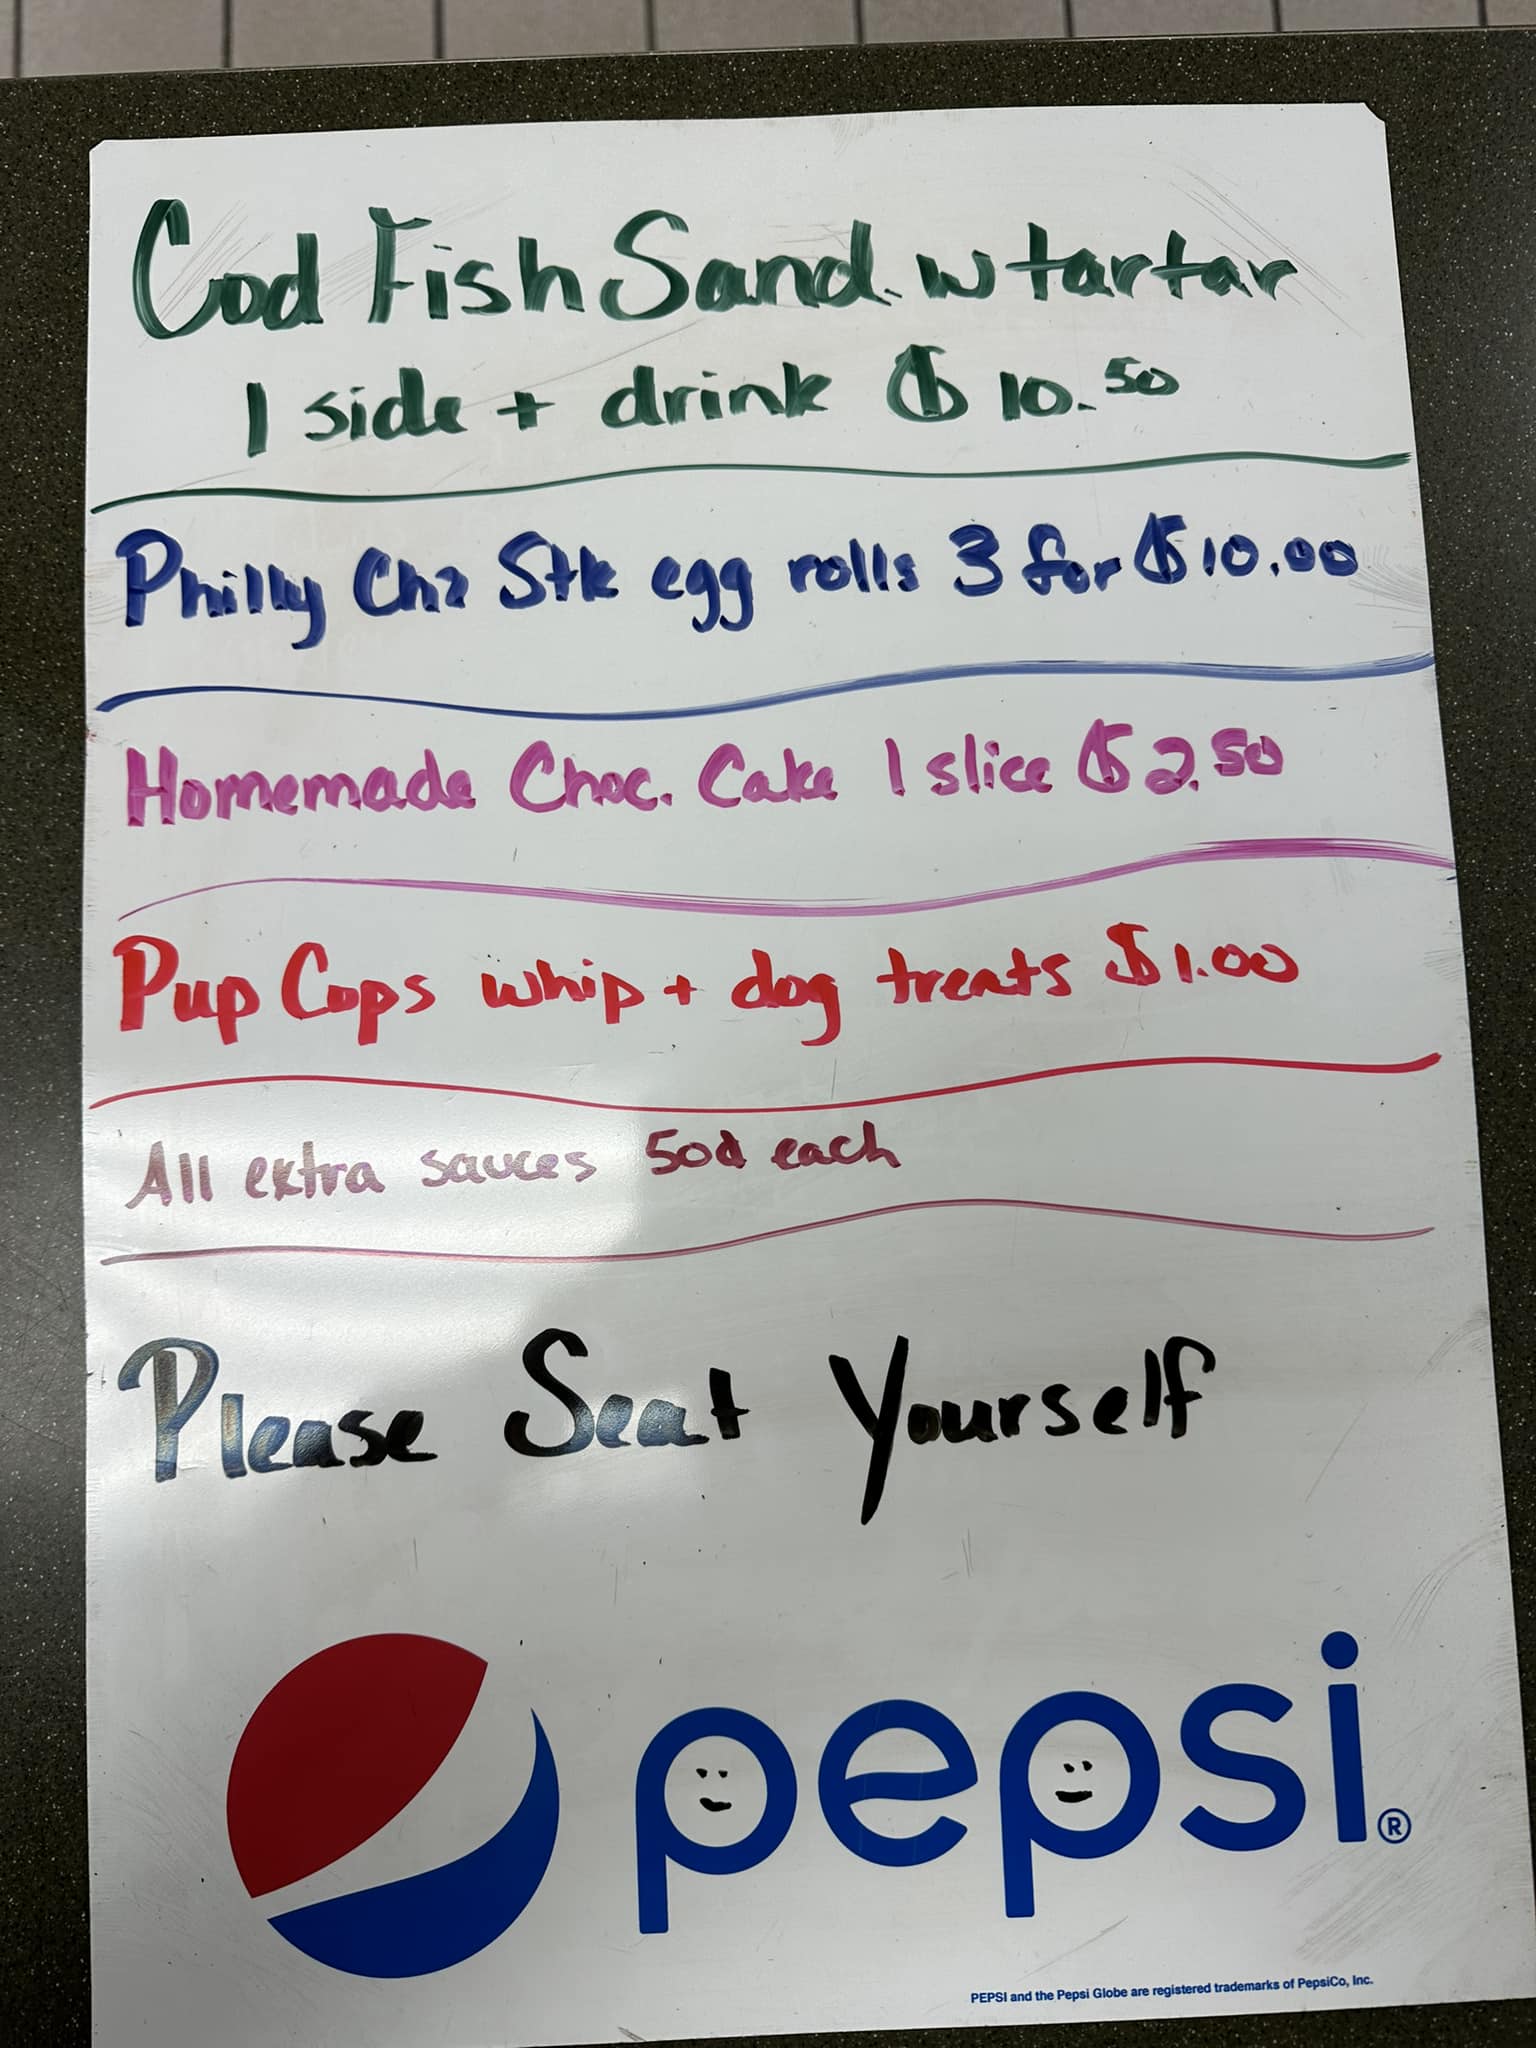 Cod Fish Sand. w tartar
1 side + drink $10.50
Philly Chz Stk egg rolls 3 for $10.00
Homemade Choc. Cake 1 slice $2.50
Pup Cups whip + dog treats $1.00
All extra sauces 50¢ each
Please Seat Yourself
pepsi®
PEPSI and the Pepsi Globe are registered trademarks of PepsiCo, Inc.